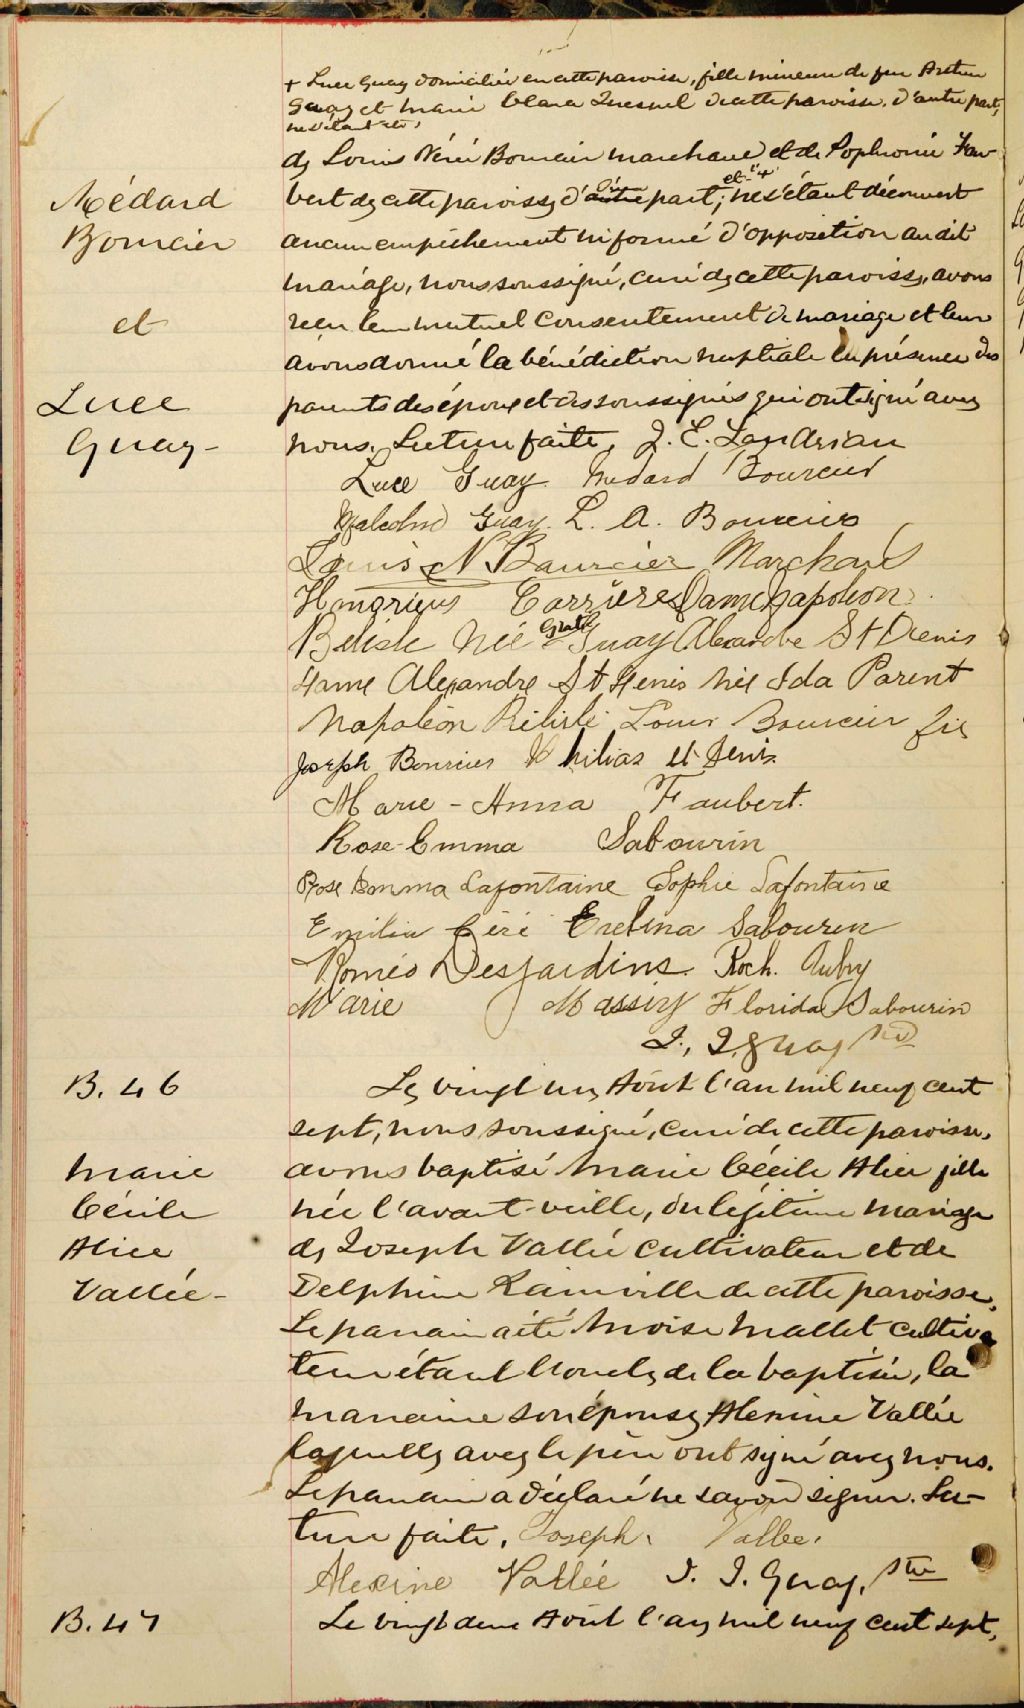 + Luce Guay domiciliée en cette paroisse, fille mineure de feu Arthur
Guay et Marie Clara Quesnel de cette paroisse, d'autre part,
ne s'étant etc,
de Louis Néré Bourcier marchand et de Sophronie Fau-
et "+"
Médard
bert de cette paroisse, d'une part; ne s'étant découvert
Bourcier
aucun empêchement ni formé d'opposition au dit
mariage, nous soussigné, curé de cette paroisse, avons
et
reçu leur mutuel consentement de mariage et leur
avons donné la bénédiction nuptiale en présence des
Luce
parents des époux et des soussignés qui ont signé avec
Guay-
nous. Lecture faite. J. E. Landriau
Luce Guay Médard Bourcier
Malcolm Guay. L. A. Bourcier
Louis N. Bourcier Marchand
Honorius Carrière Dame Napoléon
Belisle Née Guay Alexandre St Denis
Dame Alexandre St Denis née Ida Parent
Napoléon Belisle Louis Bourcier fils
Joseph Bourcier Philias St Denis
Marie-Anna Faubert.
Rose-Emma Sabourin
Rose Emma Lafontaine Sophie Lafontaine
Emilia Céré Evelina Sabourin
Roméo Desjardins. Roch. Aubry
Marie Massie Florida Sabourin
J. I. Guay Ptre
B. 46
Le vingt un Août l'an mil neuf cent
sept, nous soussigné, curé de cette paroisse,
Marie
avons baptisé Marie Cécile Alice fille
Cécile
née l'avant-veille, du légitime mariage
Alice
de Joseph Vallée cultivateur et de
Vallée-
Delphine Rainville de cette paroisse.
Le parrain a été Moise Mallet cultiva
teur étant l'oncle de la baptisée, la
marraine son épouse Alexine Vallée
laquelle avec le père ont signé avec nous.
Le parrain a déclaré ne savoir signer. Lec-
ture faite. Joseph. Vallée.
Alexine Vallée J. I. Guay, Ptre
B. 47
Le vingt deux Août l'an mil neuf cent sept,